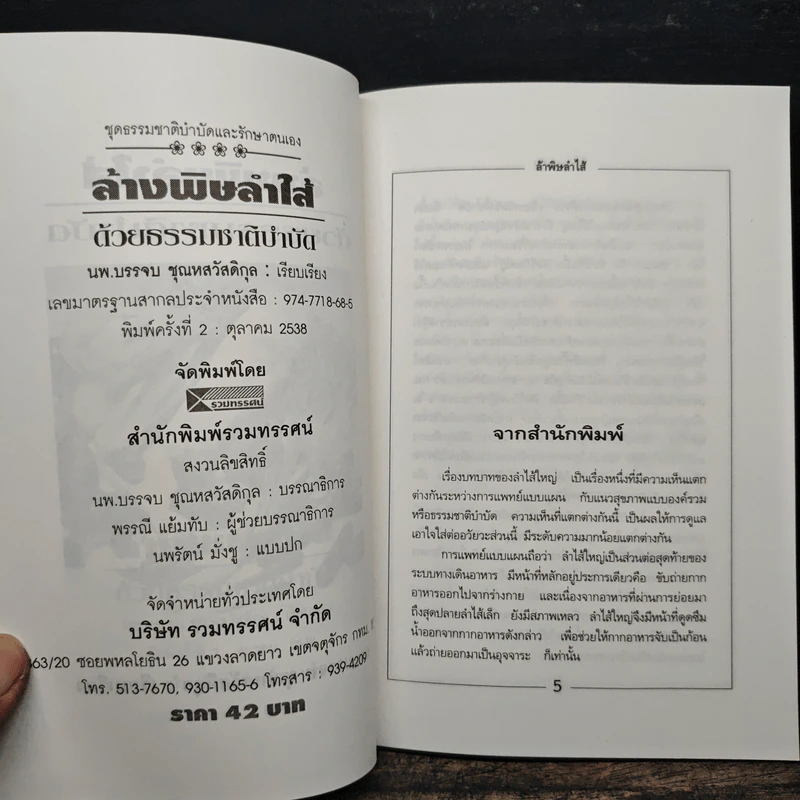 ชุดธรรมชาติบำบัดและรักษาตนเอง
ล้างพิษลำไส้
ด้วยธรรมชาติบำบัด
นพ.บรรจบ ชุณหสวัสดิกุล : เรียบเรียง
เลขมาตรฐานสากลประจำหนังสือ : 974-7718-68-5
พิมพ์ครั้งที่ 2 : ตุลาคม 2538
จัดพิมพ์โดย
รวมทรรศน์
สำนักพิมพ์รวมทรรศน์
สงวนลิขสิทธิ์
นพ.บรรจบ ชุณหสวัสดิกุล : บรรณาธิการ
พรรณี แย้มทับ : ผู้ช่วยบรรณาธิการ
นพรัตน์ มั่งชู : แบบปก
จัดจำหน่ายทั่วประเทศโดย
บริษัท รวมทรรศน์ จำกัด
63/20 ซอยพหลโยธิน 26 แขวงลาดยาว เขตจตุจักร กทม.
โทร. 513-7670, 930-1165-6 โทรสาร : 939-4209
ราคา 42 บาท
ล้าพิษลำไส้
จากสำนักพิมพ์
เรื่องบทบาทของลำไส้ใหญ่ เป็นเรื่องหนึ่งที่มีความเห็นแตก
ต่างกันระหว่างการแพทย์แบบแผน กับแนวสุขภาพแบบองค์รวม
หรือธรรมชาติบำบัด ความเห็นที่แตกต่างกันนี้ เป็นผลให้การดูแล
เอาใจใส่ต่ออวัยวะส่วนนี้ มีระดับความมากน้อยแตกต่างกัน
การแพทย์แบบแผนถือว่า ลำไส้ใหญ่เป็นส่วนต่อสุดท้ายของ
ระบบทางเดินอาหาร มีหน้าที่หลักอยู่ประการเดียวคือ ขับถ่ายกาก
อาหารออกไปจากร่างกาย และเนื่องจากอาหารที่ผ่านการย่อยมา
ถึงสุดปลายลำไส้เล็ก ยังมีสภาพเหลว ลำไส้ใหญ่จึงมีหน้าที่ดูดซึม
น้ำออกจากกากอาหารดังกล่าว เพื่อช่วยให้กากอาหารจับเป็นก้อน
แล้วถ่ายออกมาเป็นอุจจาระ ก็เท่านั้น
5